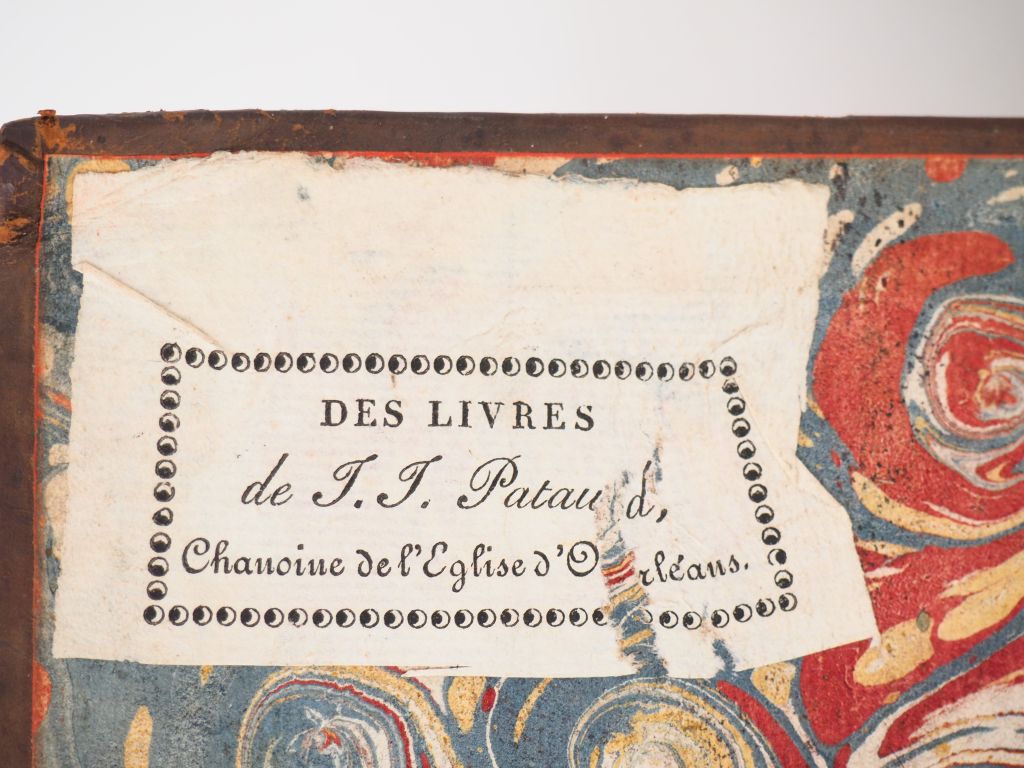 DES LIVRES
de J. J. Pataud,
Chanoine de l'Eglise d'Orléans.